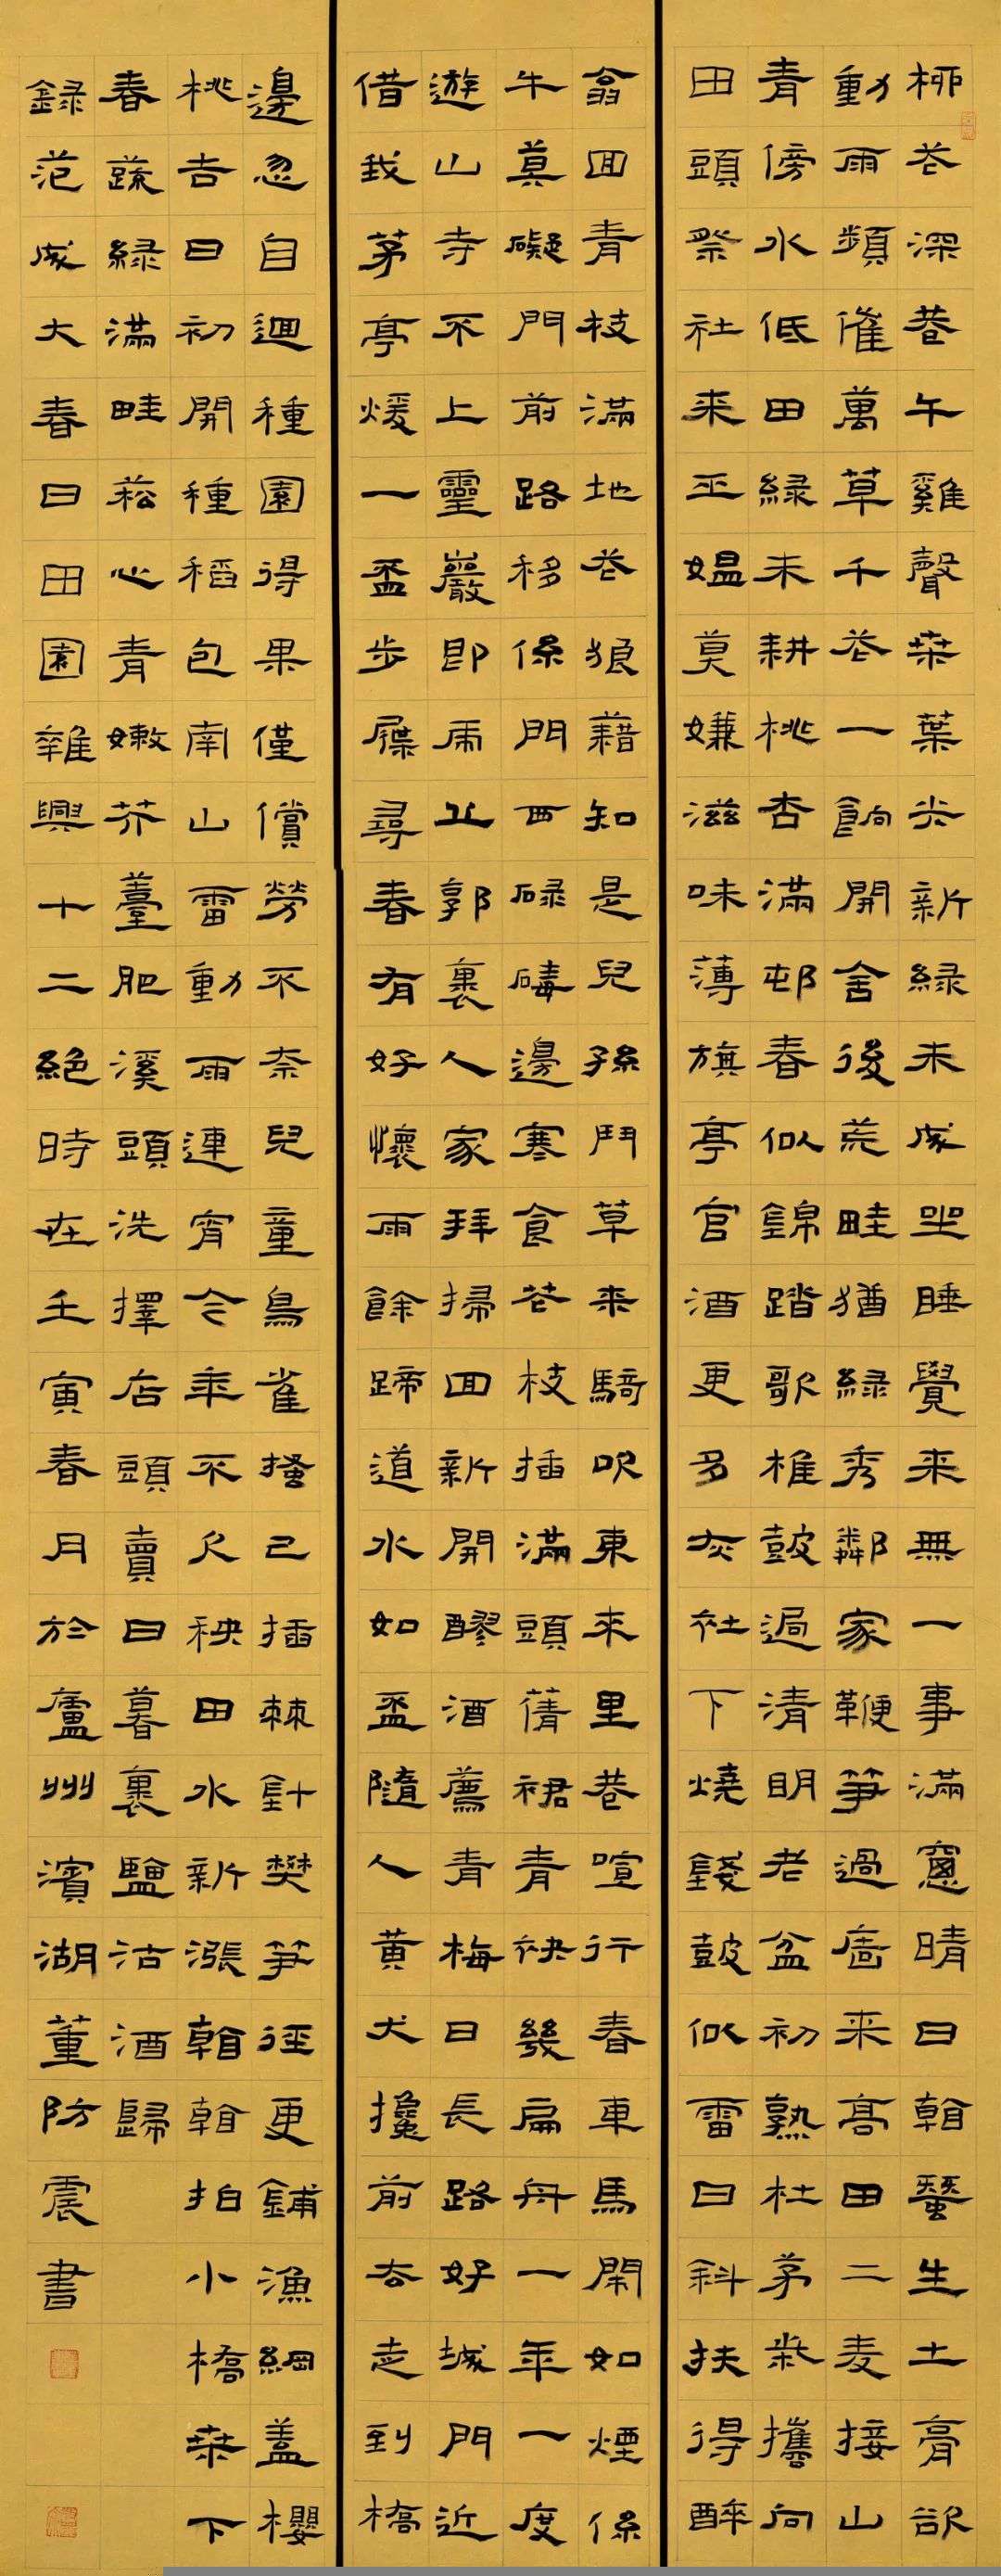 柳花深巷午雞聲桑葉尖新綠未成坐睡覺來無一事滿窓晴日看蠶生土膏欲
動雨頻催萬草千花一餉開舍後荒畦猶綠秀鄰家鞭笋過牆來高田二麦接山
青傍水低田綠未耕桃杏滿邨春似錦踏歌椎鼓過清明老盆初熟杜茅柴攜向
田頭祭社來巫媼莫嫌滋味薄旗亭官酒更多灰社下燒錢鼓似雷日斜扶得醉
翁回青枝滿地花狼藉知是兒孫鬥草來騎吹東來里巷喧行春車馬鬧如煙係
牛莫礙門前路移係門西碌碡邊寒食花枝插滿頭蒨裙青袂幾扁舟一年一度
遊山寺不上靈巖即虎丘郭裏人家拜掃回新開醪酒薦青梅日長路好城門近
借我茅亭煖一盃步屧尋春有好懷雨餘蹄道水如盃隨人黃犬攙前去走到橋
邊忽自迴種園得果僅償勞不奈兒童鳥雀搔已插棘針樊笋徑更鋪漁網蓋櫻
桃吉日初開種稻包南山雷動雨連宵今年不欠秧田水新漲看看拍小橋桑下
春蔬綠滿畦菘心青嫩芥薹肥溪頭洗擇店頭賣日暮裹鹽沽酒歸
録范成大春日田園雜興十二絕時在壬寅春月於廬州濱湖董防震書